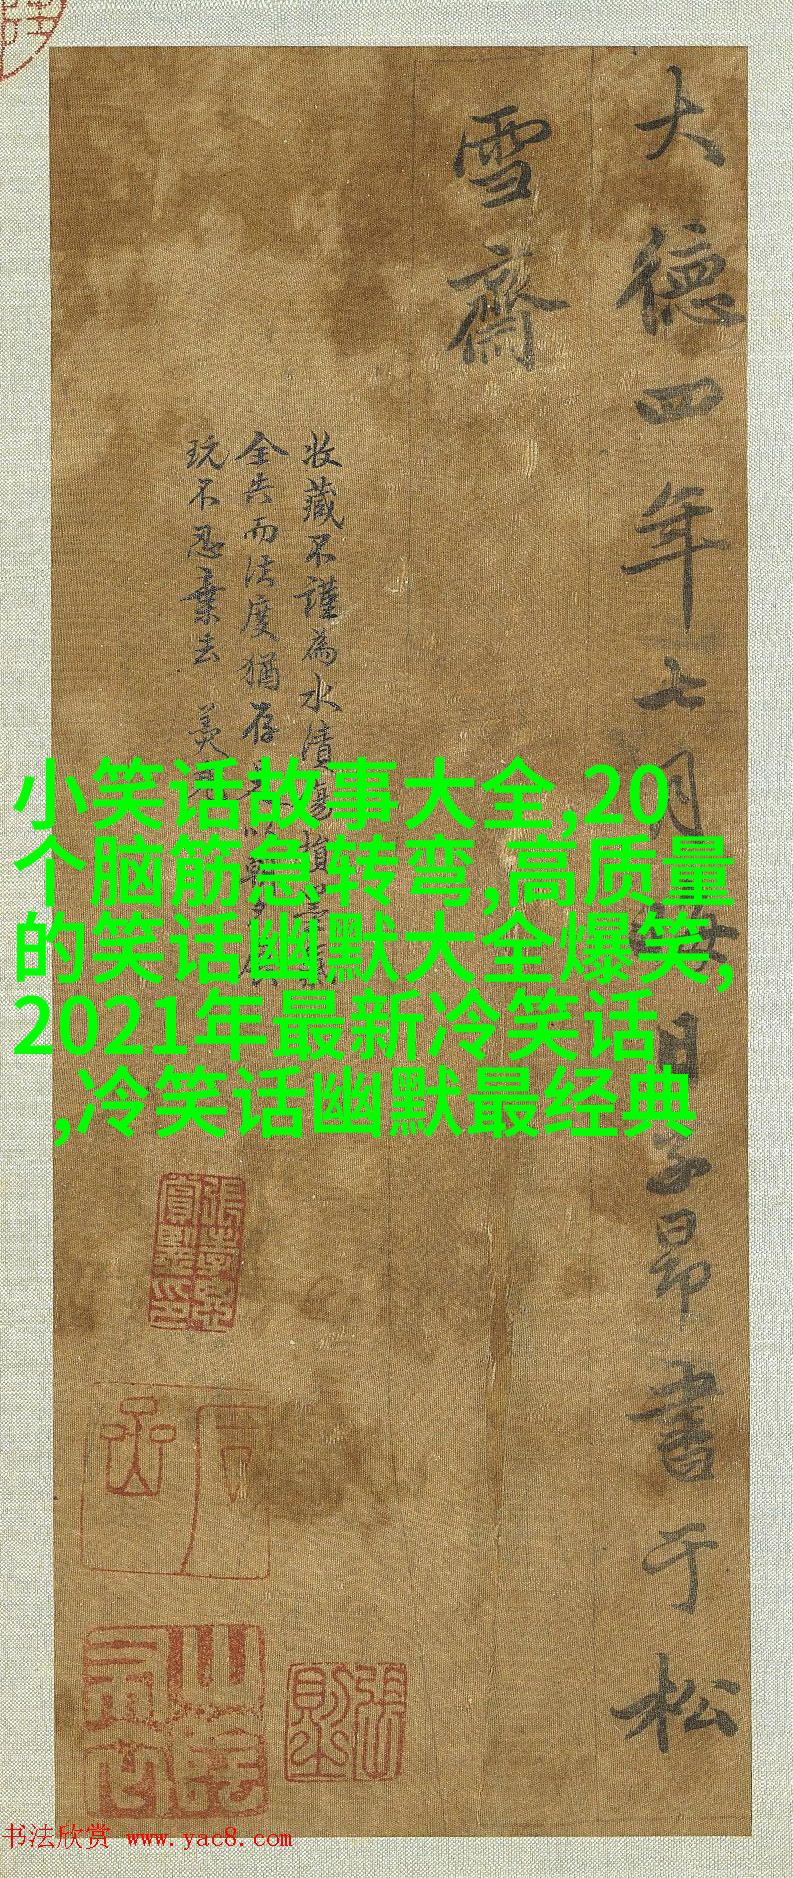 大德四年七月
日子昂書于松
雪齋
收藏不謹為水漬傷損
全告而法度猶存
玩不忍棄去
小笑话故事大全,20
个脑筋急转弯,高质量
的笑话幽默大全爆笑,
2021年最新冷笑话
,冷笑话幽默最经典
书法欣赏 www.yac8.com